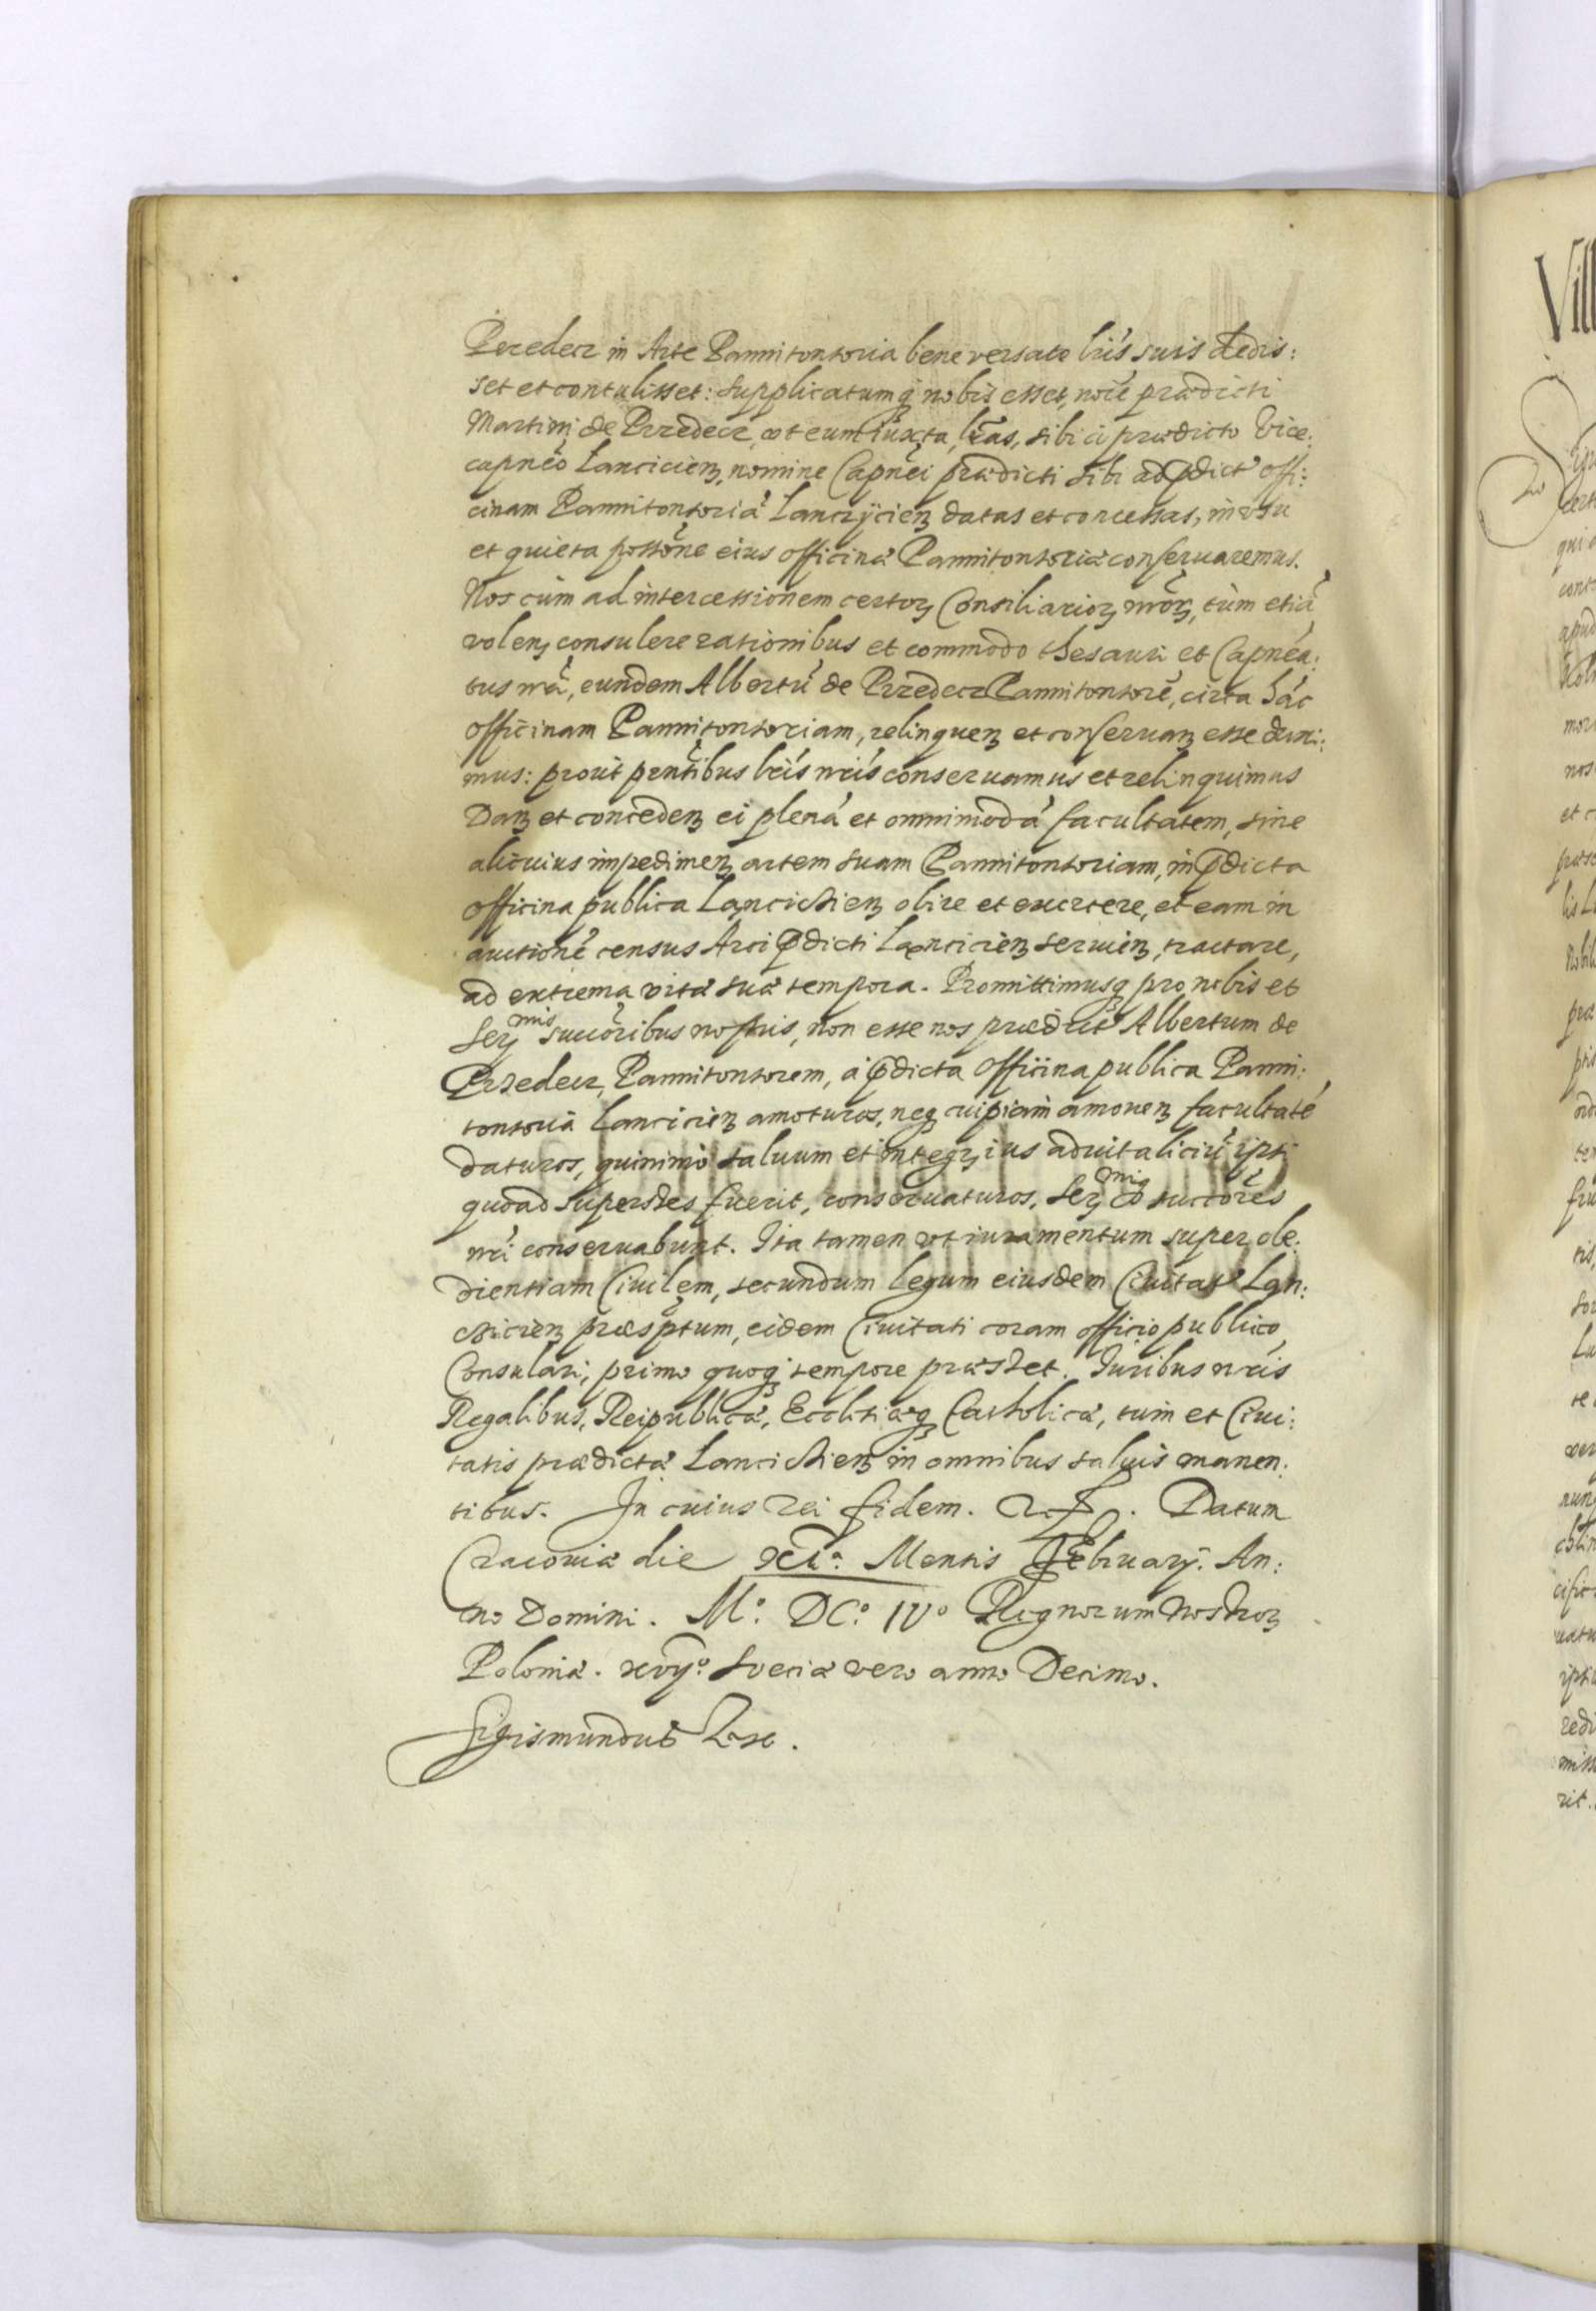 Przedecz in Arte Pannitonsoria bene versato lris suis dedis:
set et contulisset: Supplicatumq nobis esset, noie prædicti
Martini de Przedecz, ut eum iuxta lras, sibi à prædicto Vice:
capneo Lanciciens, nomine Capnei prædicti sibi ad pdict offi:
cinam Pannitonsoriā Lanczyciens datas et concessas, in usu
et quieta possone eius officinæ Pannitonsoriæ conservaremus.
Nos cùm ad intercessionem certoꝝ Consiliarioꝝ nroꝝ, tùm etiā
volens consulere rationibus et commodo thesauri et Capnea:
tus nri, eundem Albertū de Przedecz Pannitonsorē, circa hāc
officinam Pannitonsoriam, relinquen et conservan esse duxi:
mus: prout pntibus lris nris conservamus et relinquimus
Dan et conceden ei plenā et omnimodā facultatem, sine
alicuius impedimen artem suam Pannitonsoriam, in pdicta
officina publica Lancichien obire et exercere, et eam in
auctionē census Arci pdicti Lancicien servien, tractare,
ad extrema vitæ suæ tempora. Promittimusq pro nobis et
Ser mis succoribus nostris, non esse nos prædict Albertum de
Przedecz, Pannitonsorem, à pdicta officina publica Panni:
tonsoria Lancicien amoturos, neq cuipiam amoven facultatē
daturos, quinimò salvum et integꝝ ius advitaliciū ipsi
quoad superstes fuerit, conservaturos, Ser mi qȝ succores
nri conservabunt. Ita tamen ut iuramentum super obe:
dientiam Civilem, secundum legum eiusdem Civitat Lan:
chicien præsptum, eidem Civitati coram officio publico
Consulari, primo quoq tempore præstet. Iuribus nris
Regalibus, Reipublicæ, Ecclesiæq Catholicæ, tum et Civi:
tatis prædictæ Lancichien in omnibus salvis manen:
tibus. In cuius rei fidem. Datum
Cracoviæ die Mensis February. An:
no Domini. Mº. DCº. IVº Regnorum Nostroꝝ
Poloniæ. xvijº. Sveciæ vero anno Decimo.
Sigismundus Rex.